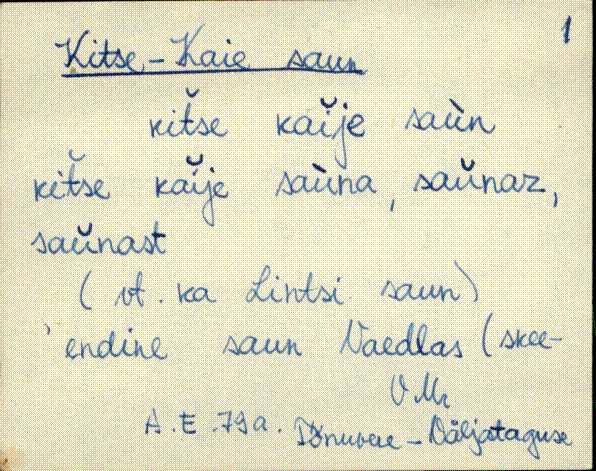 1
Kitse-Kaie saun
kit̆se kaĭje saùn
kit̆se kaĭje saùna, saŭnaz,
saŭnast
(vt. ka Lintsi saun)
endine saun Vaedlas (skee-
V Mr
A.E. 79a. Tõnuvere - Väljataguse